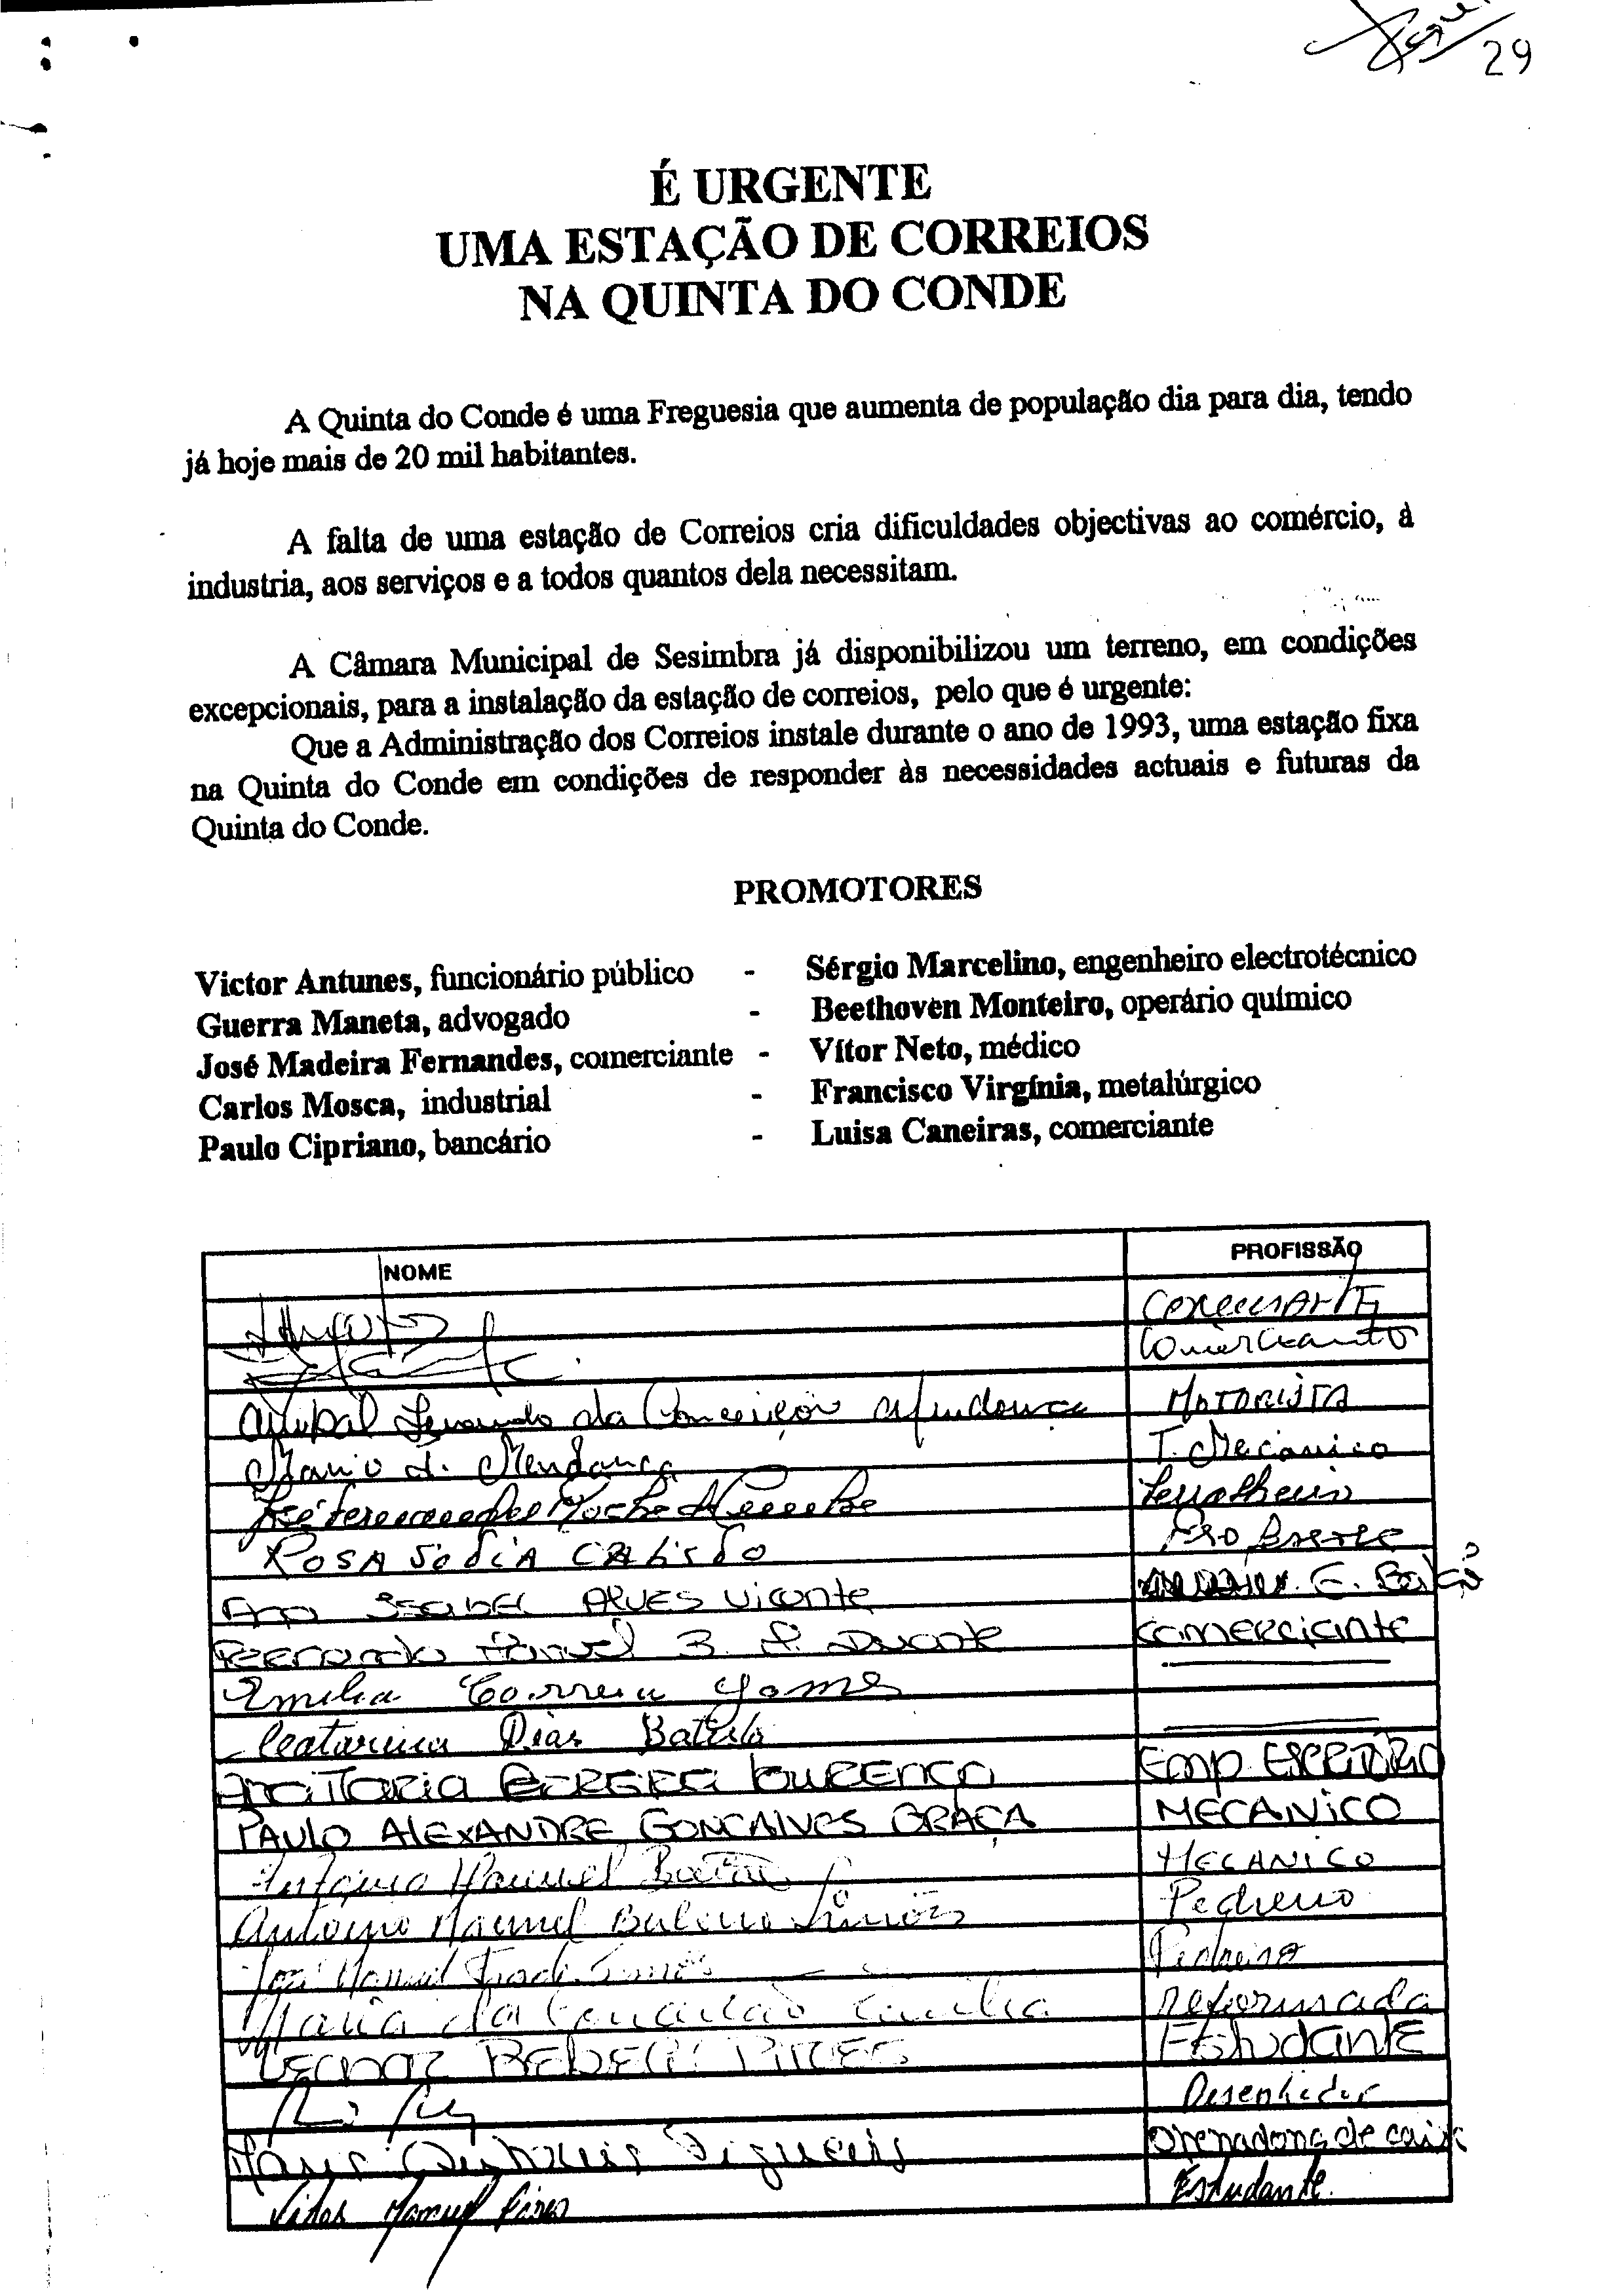 29
É URGENTE
UMA ESTAÇÃO DE CORREIOS
NA QUINTA DO CONDE
A Quinta do Conde é uma Freguesia que aumenta de população dia para dia, tendo
já hoje mais de 20 mil habitantes.
A falta de uma estação de Correios cria dificuldades objectivas ao comércio, à
industria, aos serviços e a todos quantos dela necessitam.
A Câmara Municipal de Sesimbra já disponibilizou um terreno, em condições
excepcionais, para a instalação da estação de correios, pelo que é urgente:
Que a Administração dos Correios instale durante o ano de 1993, uma estação fixa
na Quinta do Conde em condições de responder às necessidades actuais e futuras da
Quinta do Conde.
PROMOTORES
Victor Antunes, funcionário público - Sérgio Marcelino, engenheiro electrotécnico
Guerra Maneta, advogado - Beethoven Monteiro, operário químico
José Madeira Fernandes, comerciante - Vítor Neto, médico
Carlos Mosca, industrial - Francisco Virgínia, metalúrgico
Paulo Cipriano, bancário - Luisa Caneiras, comerciante
NOME PROFISSÃO
Comerciante
da Conceição Mendonça MOTORISTA
Mario Mendonça T. Mecanico
Serralheiro
ROSA CALISTO
Ana ISABEL ALVES Vicente E. Balcão
Fernando Manuel B. Duarte COMERCIANTE
Emilia Correia Gomes
Catarina Dias Batista
LOURENÇO EMP. ESCRITÓRIO
PAULO ALEXANDRE GONCALVES GRAÇA MECANICO
António Manuel MECANICO
Antonio Manuel Simões Pedreiro
José Manuel Simões Pedreiro
Maria da Conceição reformada
PIRES Estudante
Desenhador
Maria Figueira Operadora de caixa
Manuel Pires Estudante.